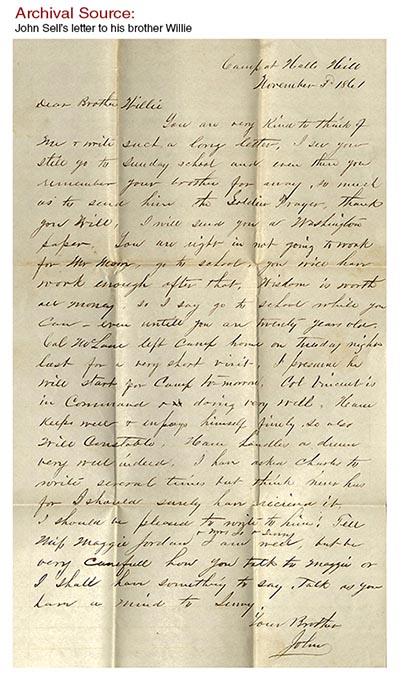 Archival Source:
John Sell's letter to his brother Willie
Camp at Halls Hill
November 1861
Dear Brother Willie
You are very kind to think of
me & write such a long letter, I see you
still go to sunday school and even then you
remember your brother far away, so much
as to send him the Soldier Prayer, thank
you Will, I will send you a Washington
paper. You are right in not going to work
for Mr go to school, you will have
work enough after that, Wisdom is worth
all money so I say go to school while you
can - even untill you are twenty years old.
Col McLane left Camp home on tuesday night
last for a very short visit. I presume he
will start for Camp to-morrow. Col Vincent is
in Command & doing very well.
keeps well & enjoys himself finely, so also
Will Constable. handles a drum
very well indeed. I have asked Charles to
write several times but think never has
for I should surely have recieved it
I should be pleased to write to him. Tell
Miss Maggie Jordan & Mrs & Jenny I am well, but be
very carefull how you talk to Maggie or
I shall have something to say. talk as you
have a mind to Jenny.
Your Brother
John